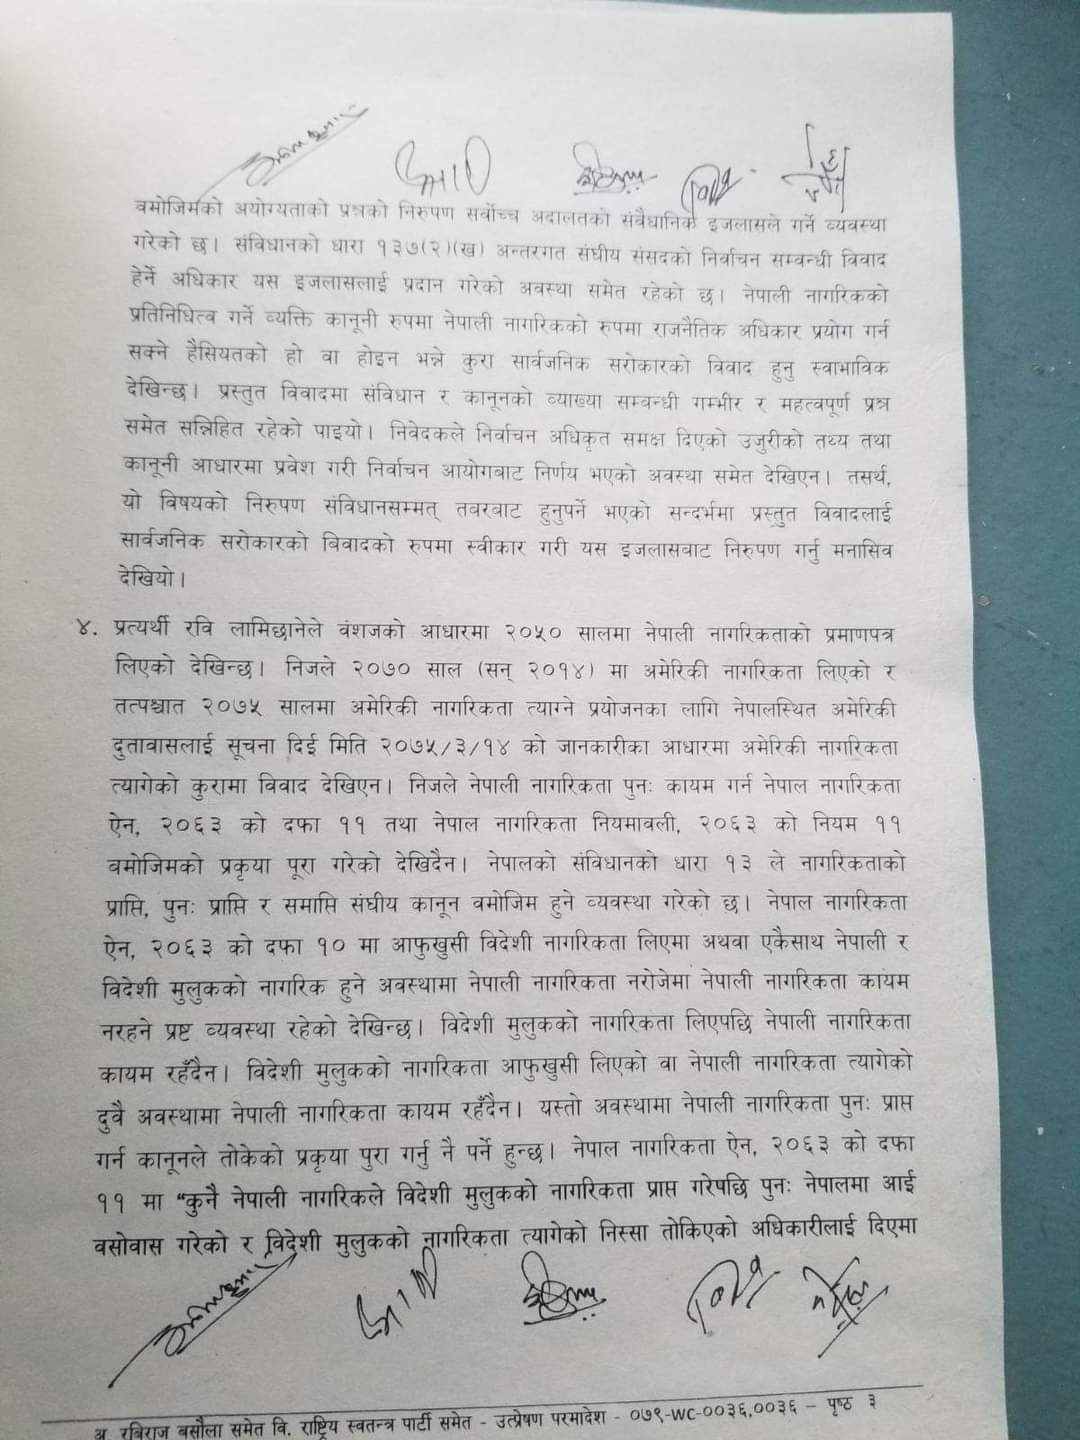 वमोजिमको अयोग्यताको प्रश्नको निरुपण सर्वोच्च अदालतको संवैधानिक इजलासले गर्ने व्यवस्था
गरेको छ। संविधानको धारा १३७(२)(ख) अन्तरगत संघीय संसदको निर्वाचन सम्बन्धी विवाद
हेर्ने अधिकार यस इजलासलाई प्रदान गरेको अवस्था समेत रहेको छ। नेपाली नागरिकको
प्रतिनिधित्व गर्ने व्यक्ति कानूनी रुपमा नेपाली नागरिकको रुपमा राजनैतिक अधिकार प्रयोग गर्न
सक्ने हैसियतको हो वा होइन भन्ने कुरा सार्वजनिक सरोकारको विवाद हुनु स्वाभाविक
देखिन्छ। प्रस्तुत विवादमा संविधान र कानूनको व्याख्या सम्बन्धी गम्भीर र महत्वपूर्ण प्रश्न
समेत सन्निहित रहेको पाइयो। निवेदकले निर्वाचन अधिकृत समक्ष दिएको उजुरीको तथ्य तथा
कानूनी आधारमा प्रवेश गरी निर्वाचन आयोगबाट निर्णय भएको अवस्था समेत देखिएन। तसर्थ,
यो विषयको निरुपण संविधानसम्मत् तबरबाट हुनुपर्ने भएको सन्दर्भमा प्रस्तुत विवादलाई
सार्वजनिक सरोकारको बिवादको रुपमा स्वीकार गरी यस इजलासबाट निरुपण गर्नु मनासिव
देखियो।
४. प्रत्यर्थी रवि लामिछानेले वंशजको आधारमा २०५० सालमा नेपाली नागरिकताको प्रमाणपत्र
लिएको देखिन्छ। निजले २०७० साल (सन् २०१४) मा अमेरिकी नागरिकता लिएको र
तत्पश्चात २०७५ सालमा अमेरिकी नागरिकता त्याग्ने प्रयोजनका लागि नेपालस्थित अमेरिकी
दुतावासलाई सूचना दिई मिति २०७५/३/१४ को जानकारीका आधारमा अमेरिकी नागरिकता
त्यागेको कुरामा विवाद देखिएन। निजले नेपाली नागरिकता पुनः कायम गर्न नेपाल नागरिकता
ऐन, २०६३ को दफा ११ तथा नेपाल नागरिकता नियमावली, २०६३ को नियम ११
वमोजिमको प्रकृया पूरा गरेको देखिदैन। नेपालको संविधानको धारा १३ ले नागरिकताको
प्राप्ति, पुनः प्राप्ति र समाप्ति संघीय कानून वमोजिम हुने व्यवस्था गरेको छ। नेपाल नागरिकता
ऐन, २०६३ को दफा १० मा आफुखुसी विदेशी नागरिकता लिएमा अथवा एकैसाथ नेपाली र
विदेशी मुलुकको नागरिक हुने अवस्थामा नेपाली नागरिकता नरोजेमा नेपाली नागरिकता कायम
नरहने प्रष्ट व्यवस्था रहेको देखिन्छ। विदेशी मुलुकको नागरिकता लिएपछि नेपाली नागरिकता
कायम रहँदैन। विदेशी मुलुकको नागरिकता आफुखुसी लिएको वा नेपाली नागरिकता त्यागेको
दुवै अवस्थामा नेपाली नागरिकता कायम रहँदैन। यस्तो अवस्थामा नेपाली नागरिकता पुनः प्राप्त
गर्न कानूनले तोकेको प्रकृया पुरा गर्नु नै पर्ने हुन्छ। नेपाल नागरिकता ऐन, २०६३ को दफा
११ मा "कुनै नेपाली नागरिकले विदेशी मुलुकको नागरिकता प्राप्त गरेपछि पुनः नेपालमा आई
वसोवास गरेको र विदेशी मुलुकको नागरिकता त्यागेको निस्सा तोकिएको अधिकारीलाई दिएमा
अ. रबिराज बसौला समेत वि. राष्ट्रिय स्वतन्त्र पार्टी समेत - उत्प्रेषण परमादेश - ०७९-WC-००३६,००३६ – पृष्ठ ३